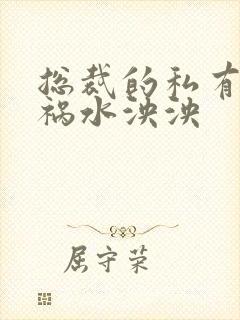 总裁的私有
祸水泱泱
屈守荣